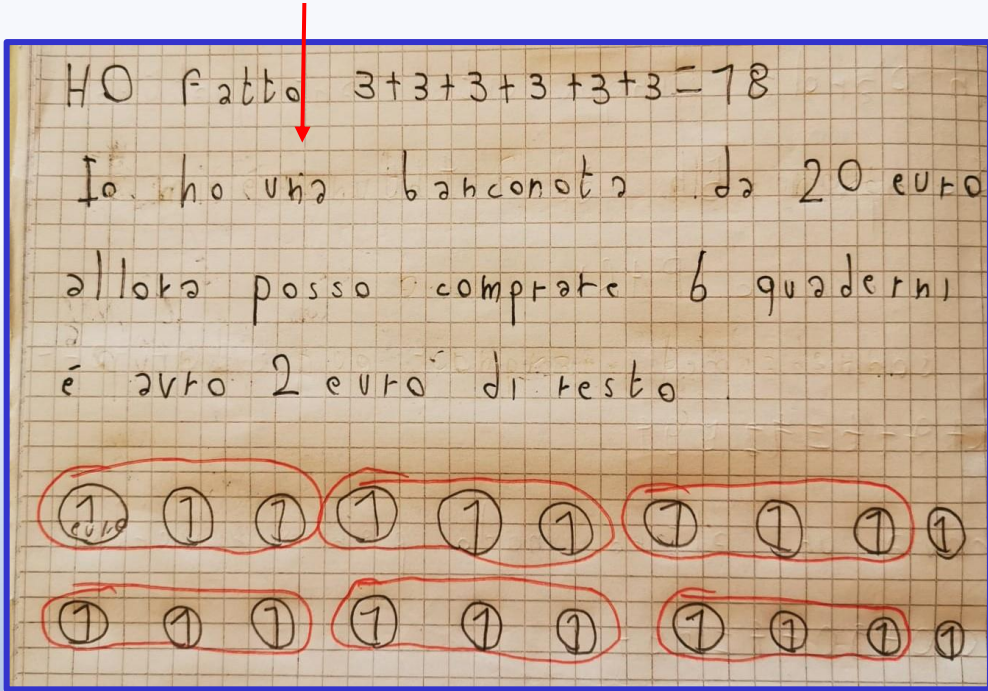 HO fatto 3+3+3+3+3+3=18
Io ho una banconota da 20 euro
allora posso comprare 6 quaderni
é avro 2 euro di resto
1 euro 1 1 1 1 1 1 1 1 1
1 1 1 1 1 1 1 1 1 1